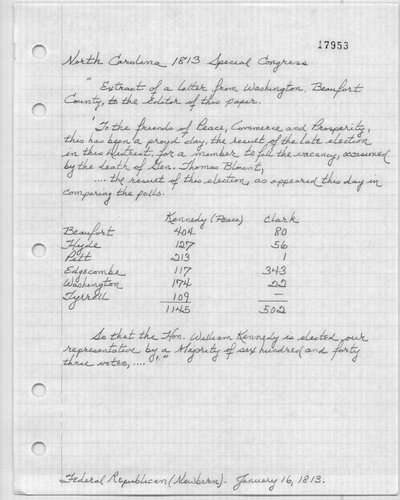 17953
North Carolina 1813 Special Congress
" Extract of a letter from Washington, Beaufort
County, to the Editor of this paper.
'To the friends of Peace, Commerce and Prosperity,
this has been a proud day, the result of the late election
in this District, for a member to fill the vacancy, occasioned
by the death of Gen. Thomas Blount,
.... the result of this election, as appeared this day in
comparing the polls.
Kennedy (Peace) Clark
Beaufort 404 80
Hyde 127 56
Pitt 213 1
Edgecombe 117 343
Washington 174 22
Tyrrell 109 —
1145 502
So that the Hon. William Kennedy is elected our
representative by a Majority of six hundred and forty
three votes, ....'"
Federal Republican (Newbern). January 16, 1813.